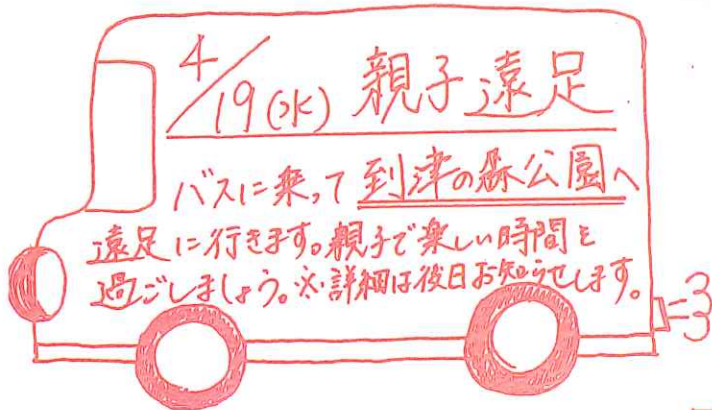 4/19(水) 親子遠足
バスに乗って到津の森公園へ
遠足に行きます。親子で楽しい時間を
過ごしましょう。※詳細は後日お知らせします。